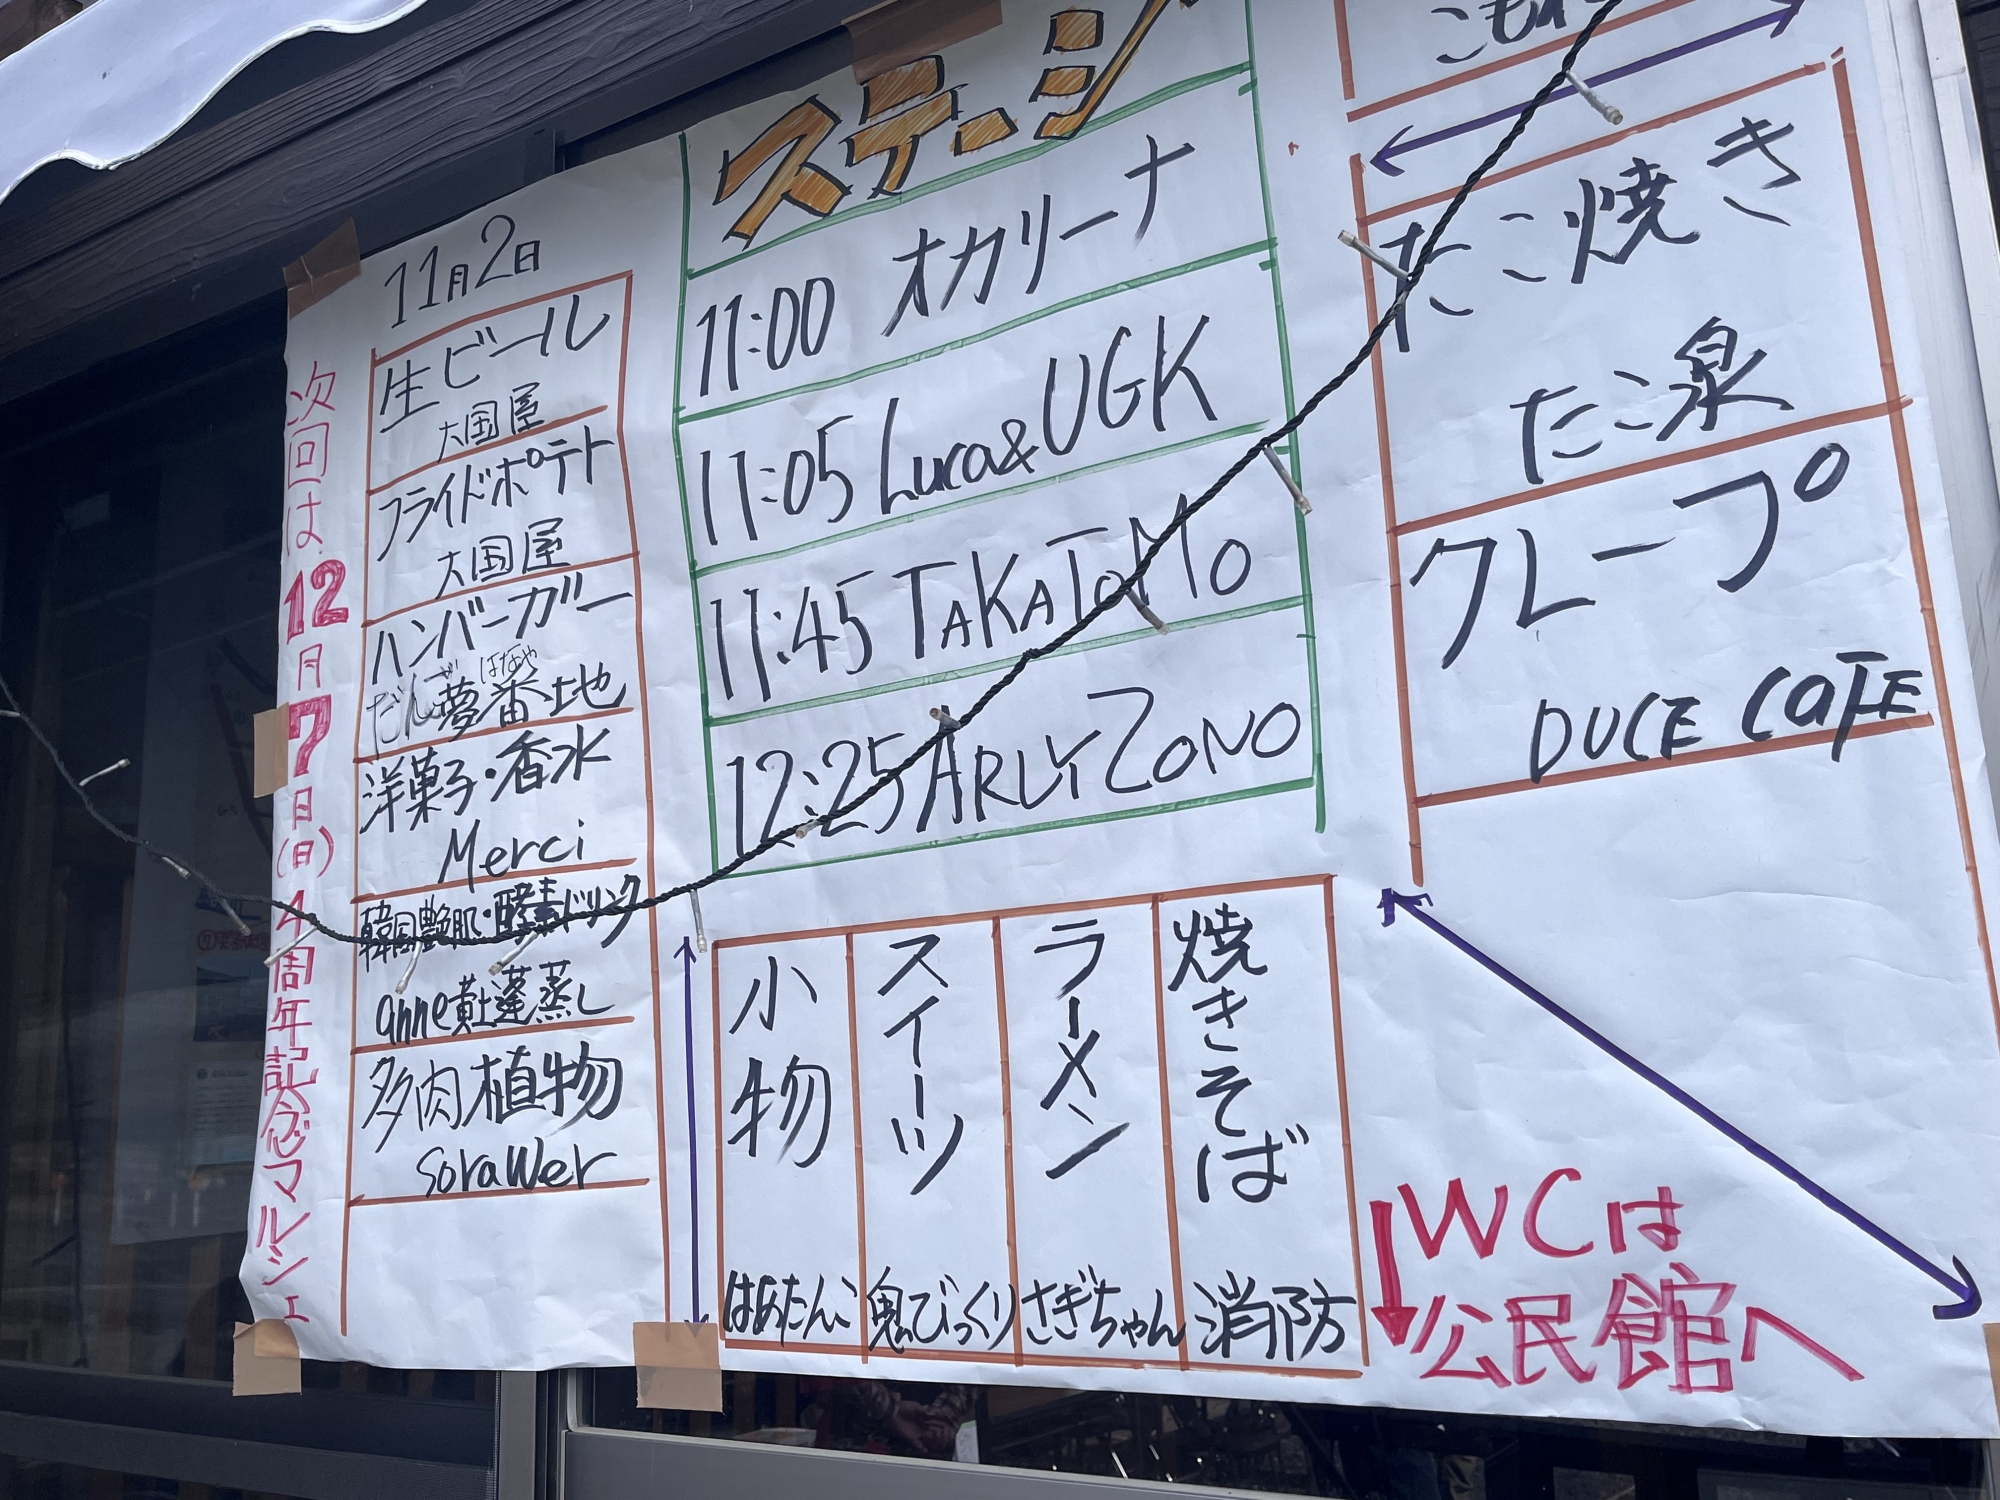 11月2日
生ビール
大国屋
フライドポテト
大国屋
ハンバーガー
だんぼ はなや
夢番地
洋菓子・香水
Merci
韓国艶肌・酵素ドリンク
anne黄土蓬蒸し
多肉植物
Sorawer
次回は12月7日(日)4周年記念マルシェ
ステージ
11:00 オカリーナ
11:05 Luca&UGK
11:45 TAKATOMO
12:25 ARLY ZONO
たこ焼き
たこ泉
クレープ
DUCE CaFE
小物
はめたんこ
スイーツ
鬼びっくり
ラーメン
さぎちゃん
焼きそば
消防
WCは
公民館へ